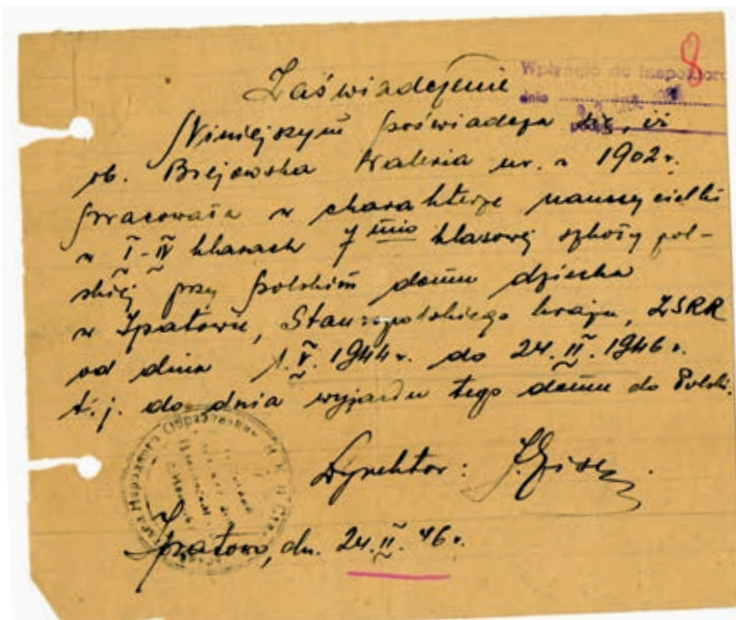 8
Wpłynęło do Inspektora
dnia
Zaświadczenie
Niniejszym poświadcza się, iż
ob. Brejowska Waleria ur. w 1902 r.
pracowała w charakterze nauczycielki
w I-IV klasach 7 mio klasowej szkoły pol-
skiej przy Polskim domu dziecka
w Ipatowie, Stawropolskiego kraju, ZSRR
od dnia 1.V.1944 r. do 24.II.1946 r.
t.j. do dnia wyjazdu tego domu do Polski.
Dyrektor:
Ipatowo, dn. 24.II.46 r.